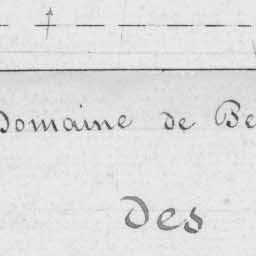 Domaine de Be
Des